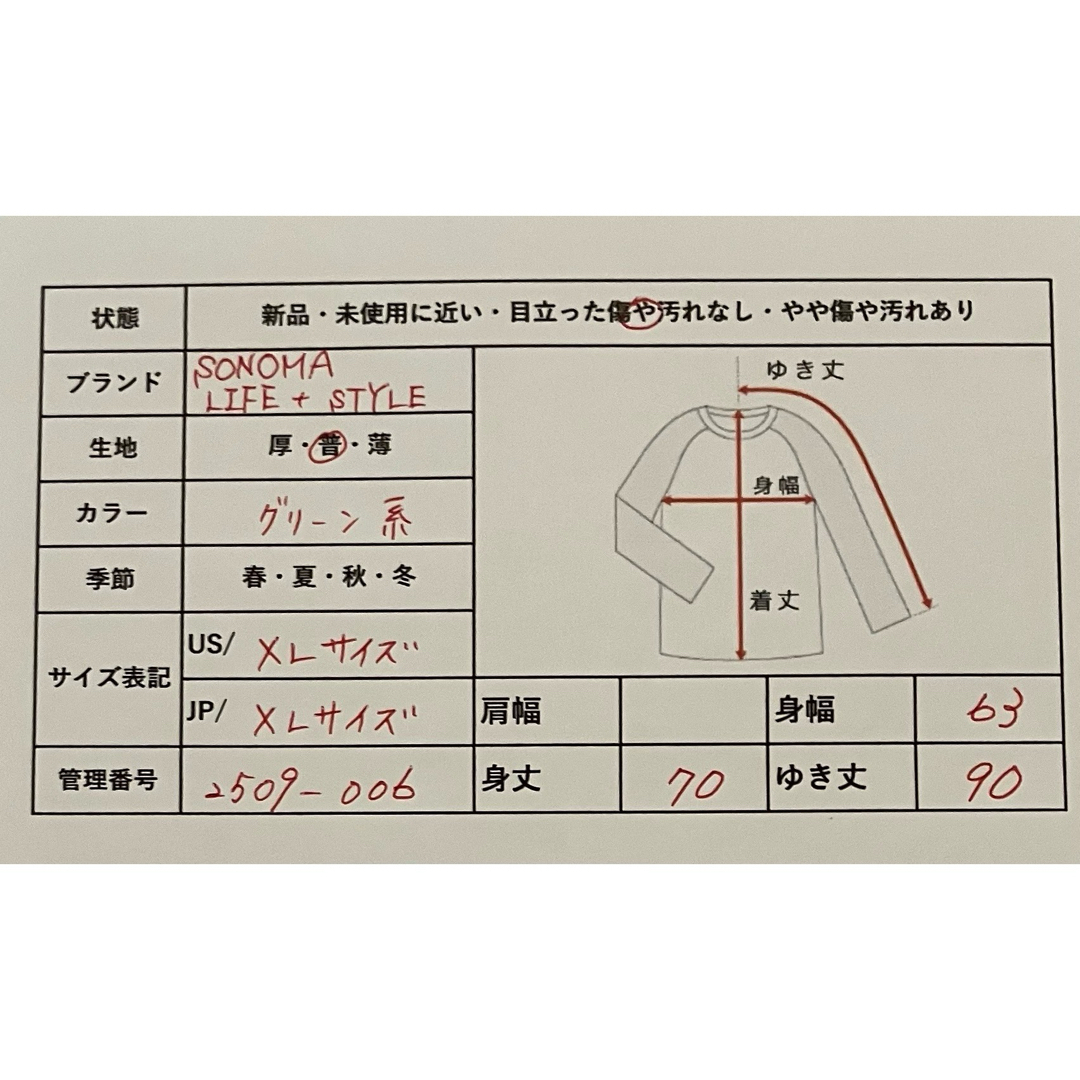 状態 新品・未使用に近い・目立った傷や汚れなし・やや傷や汚れあり
ブランド SONOMA
LIFE + STYLE
生地 厚・普・薄
カラー グリーン系
季節 春・夏・秋・冬
サイズ表記
US/ XLサイズ
JP/ XLサイズ
管理番号 2509-006
ゆき丈
身幅
着丈
肩幅 身幅 63
身丈 70 ゆき丈 90